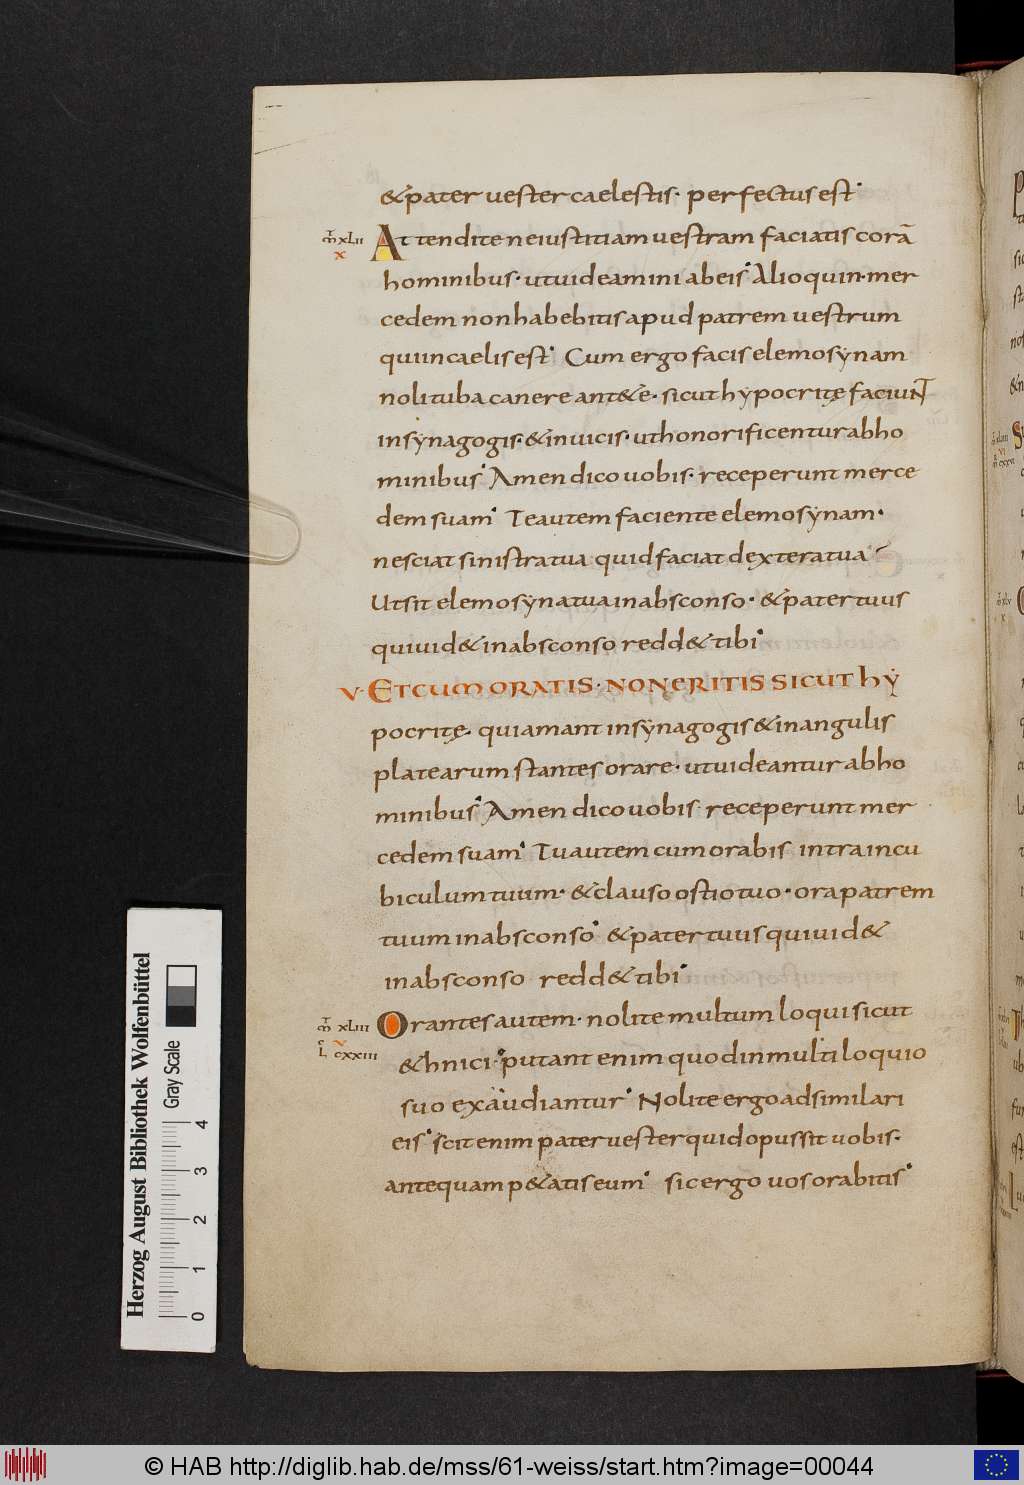 & pater uester caelestis· perfectus est·
m xLII
x
Attendite ne iustitiam uestram faciatis corā
hominibus· ut uideamini ab eis· Alioquin· mer
cedem non habebitis apud patrem uestrum
qui in caelis est· Cum ergo facis elemosynam
noli tuba canere ant&e· sicut hypocritę faciunt
in synagogis· & in uicis· ut honorificentur ab ho
minibus· Amen dico uobis· receperunt merce
dem suam· Te autem faciente elemosynam·
nesciat sinistra tua quid faciat dextera tua
Ut sit elemosyna tua in absconso· & pater tuus
qui uid& in absconso redd& tibi·
V· ET CUM ORATIS· NON ERITIS SICUT hY
pocritę· qui amant in synagogis & in angulis
platearum stantes orare· ut uideantur ab ho
minibus· Amen dico uobis receperunt mer
cedem suam· Tu autem cum orabis intra in cu
biculum tuum· & clauso ostio tuo· ora patrem
tuum in absconso· & pater tuus qui uid&
in absconso redd& tibi·
m xLIII
v
L cxxIII
Orantes autem· nolite multum loqui sicut
&hnici· putant enim quod in multiloquio
suo exaudiantur· Nolite ergo adsimilari
eis· scit enim pater uester quid opus sit uobis·
antequam p&atis eum· sic ergo uos orabitis·
Herzog August Bibliothek Wolfenbüttel
Gray Scale
0 1 2 3 4
© HAB http://diglib.hab.de/mss/61-weiss/start.htm?image=00044